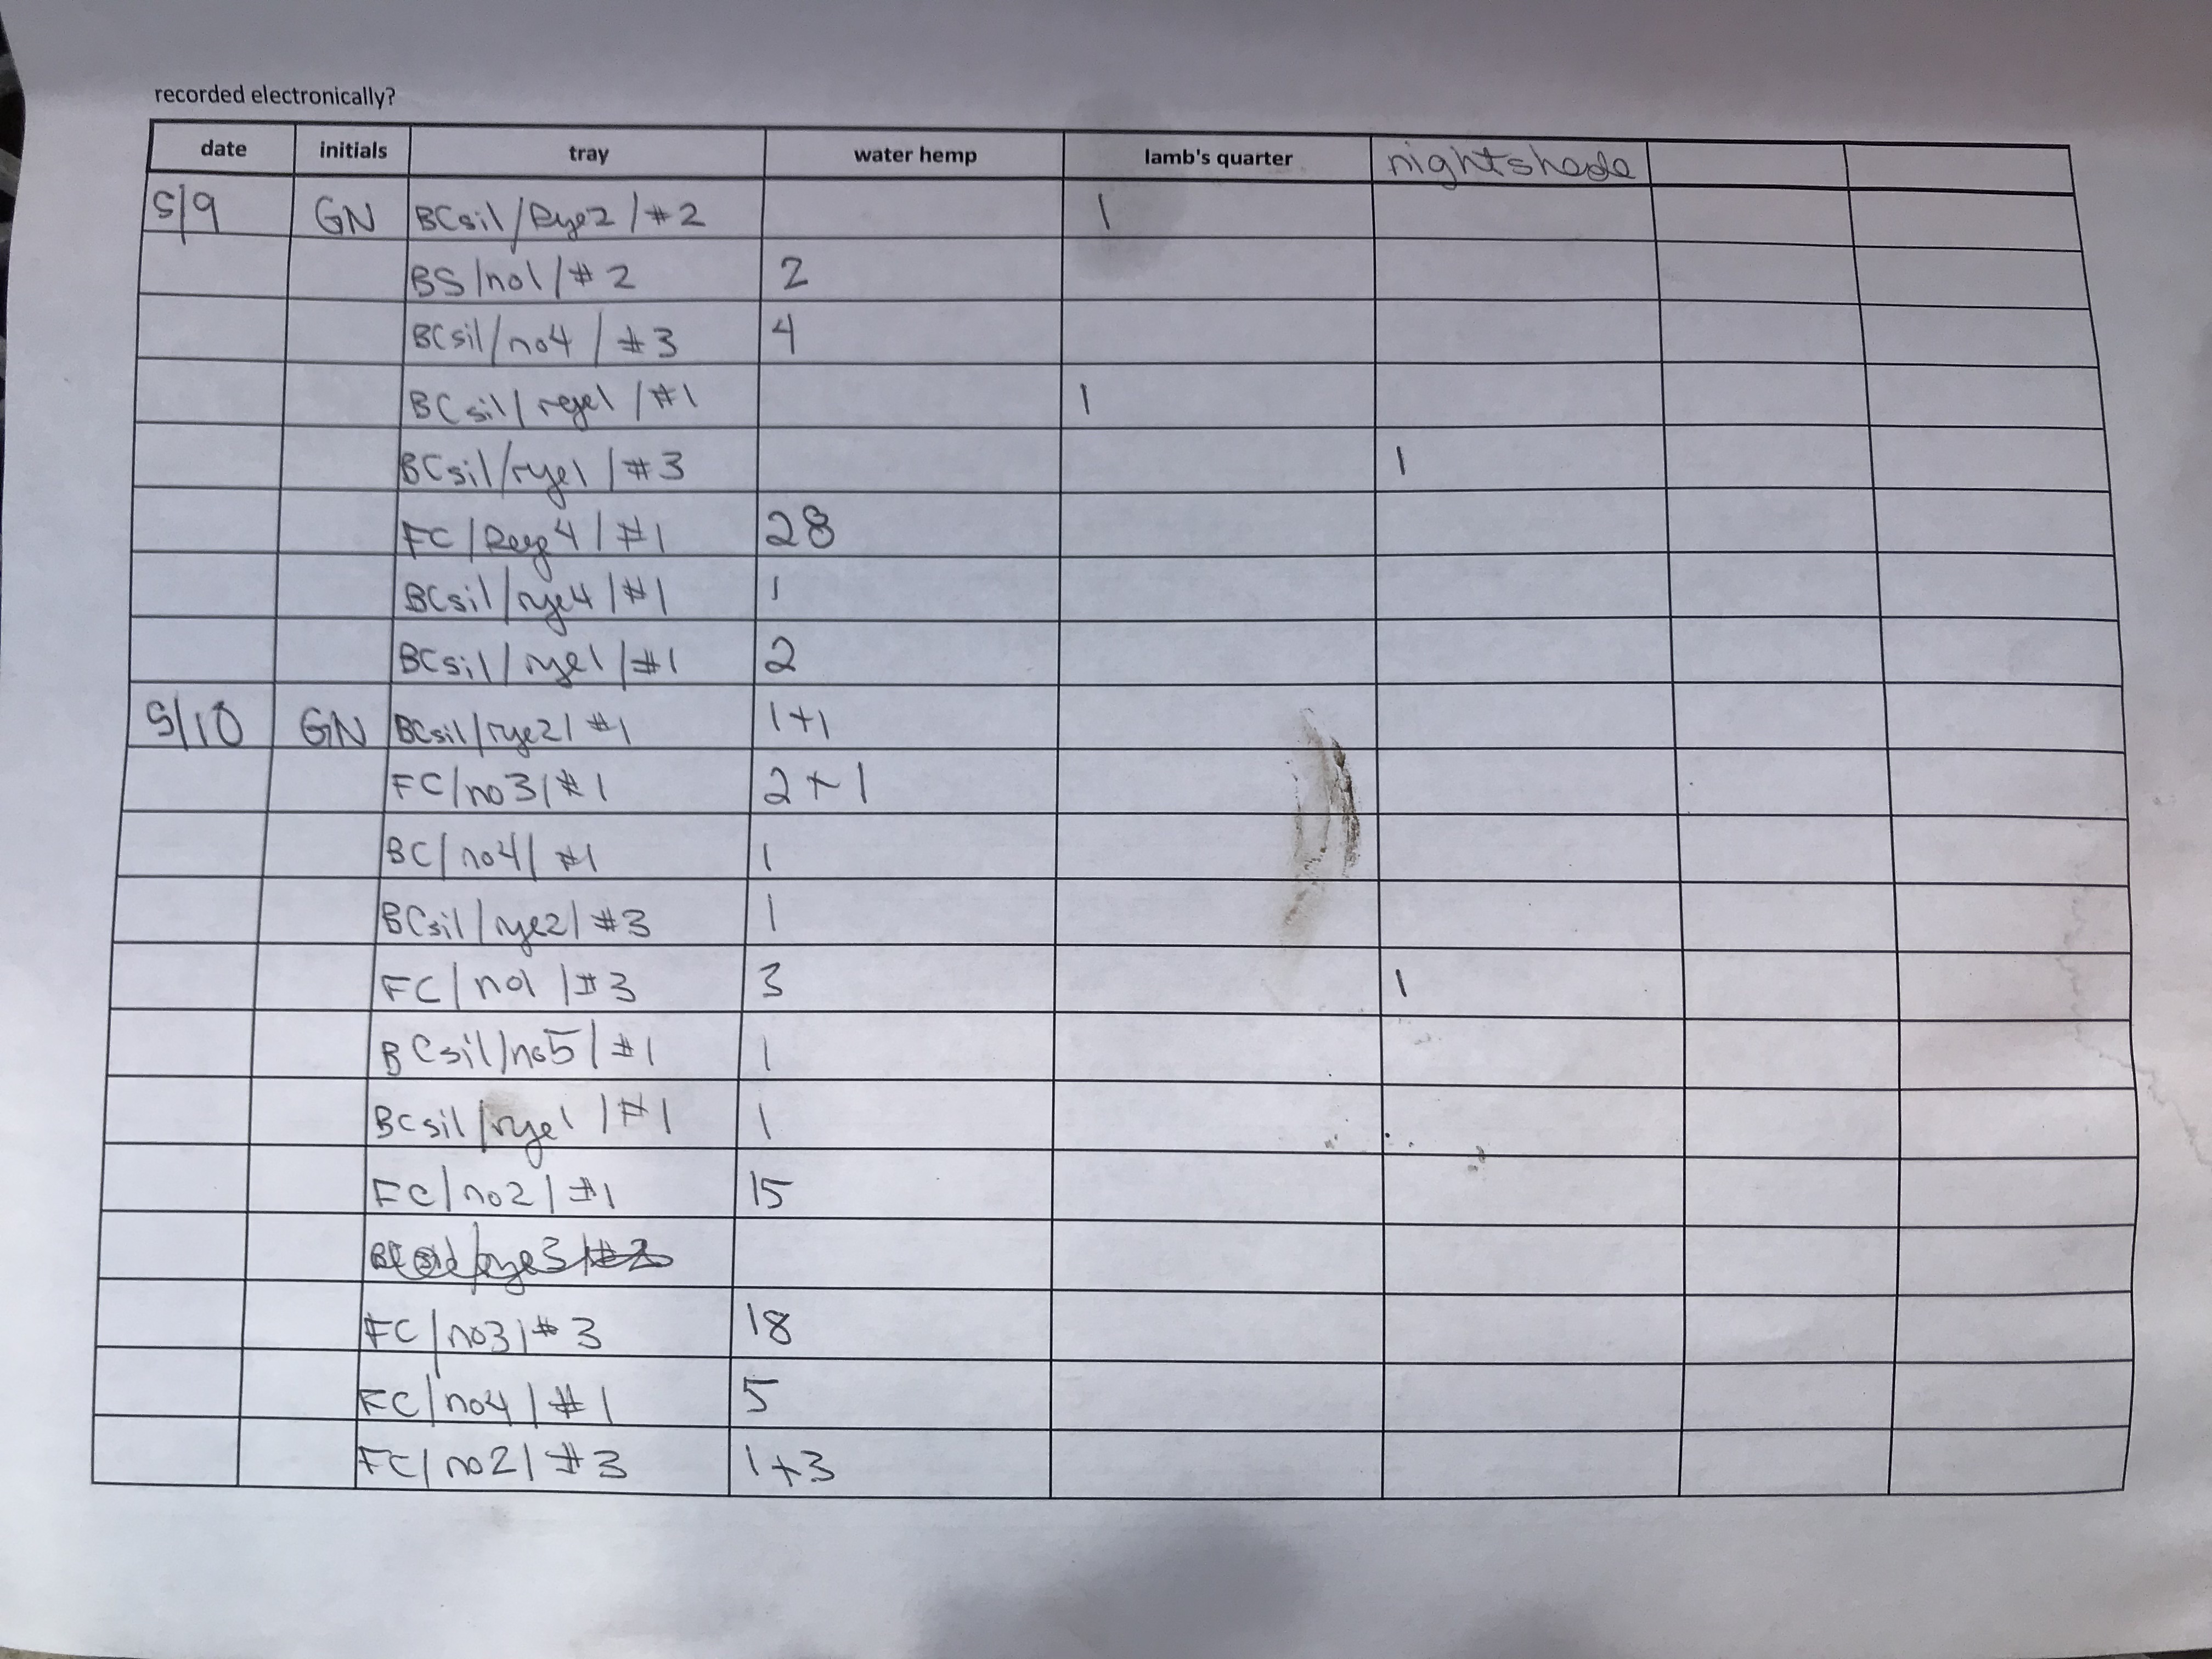 recorded electronically?
date initials tray water hemp lamb's quarter nightshade
5/9 GN BCsil/Rye2/#2 1
BS/no1/#2 2
BCsil/no4/#3 4
BCsil/rye1/#1 1
BCsil/rye1/#3 1
FC/Rye4/#1 28
BCsil/rye4/#1 1
BCsil/rye1/#1 2
5/10 GN BCsil/rye2/#1 1+1
FC/no3/#1 2+1
BC/no4/#1 1
BCsil/rye2/#3 1
FC/no1/#3 3 1
BCsil/no5/#1 1
BCsil/rye1/#1 1
FC/no2/#1 15
FC/no3/#3 18
FC/no4/#1 5
FC/no2/#3 1+3